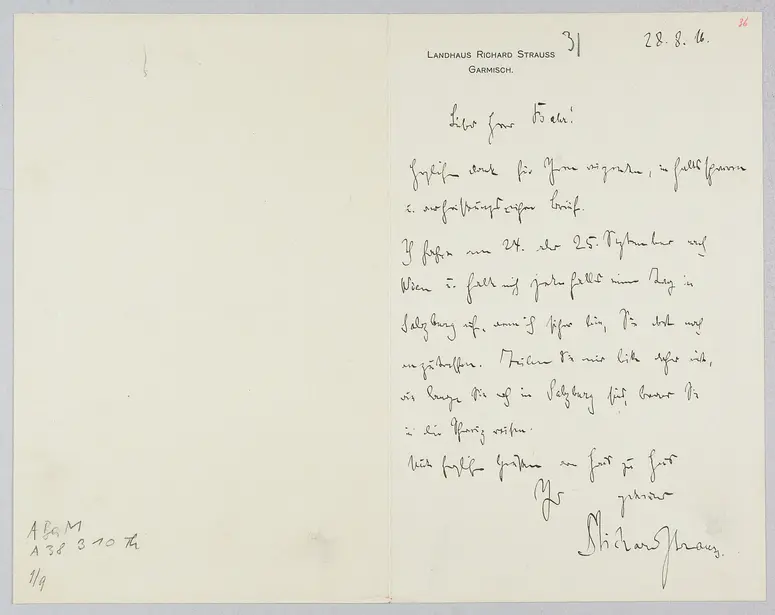 36
31
28. 8. 16.
LANDHAUS RICHARD STRAUSS
GARMISCH.
Lieber Herr Bahr!
Herzlichen Dank für Ihren reizenden, inhaltsschweren
u. verheißungsreichen Brief.
Ich fahre am 24. oder 25. September nach
Wien u. halte mich jedenfalls einen Tag in
Salzburg auf, wenn ich sicher bin, Sie dort noch
anzutreffen. Teilen Sie mir bitte daher mit,
wie lange Sie noch in Salzburg sind, bevor Sie
in die Schweiz reisen.
Mit herzlichen Grüßen von Haus zu Haus
Ihr
RichardStrauss.
A BaM
A 38 310 Th
1/9